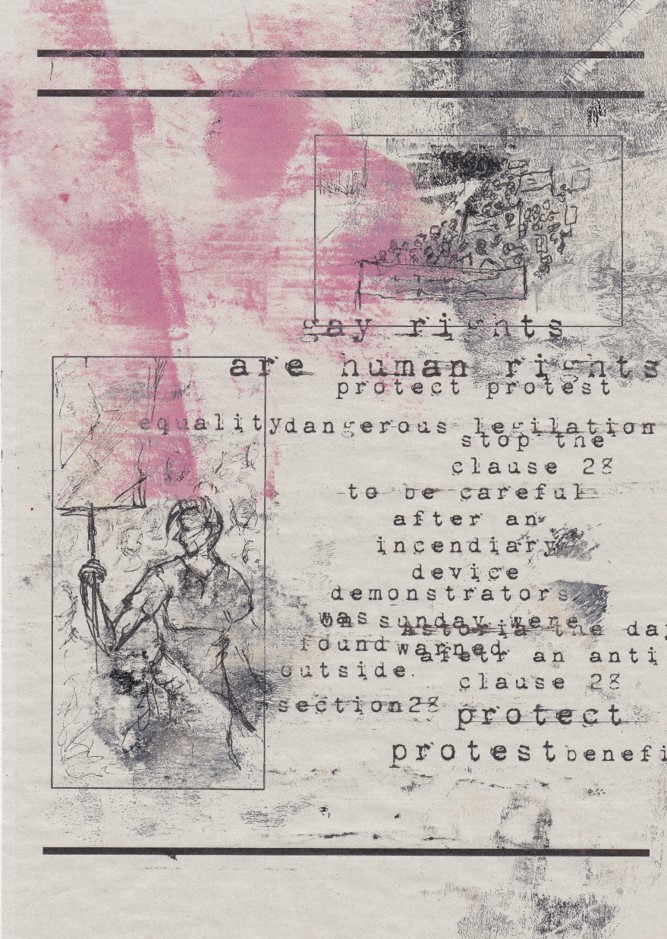 gay rights
are human rights
protect protest
equalitydangerous legilation
stop the
clause 28
to be careful
after an
incendiary
device
demonstrators
was on sunday were
Astoria the day
found warned
afetr an anti
outside.
clause 28
section28
protect
protest benefi